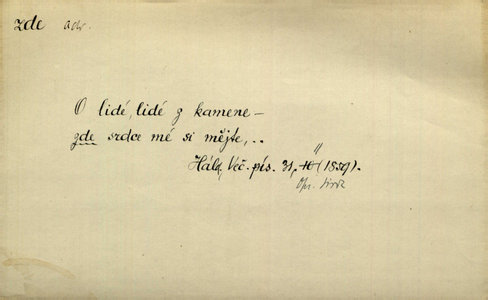 zde adv.
O lidé, lidé z kamene –
zde srdce mé si mějte, ..
Hálek, Več. pís. 31, (1859).